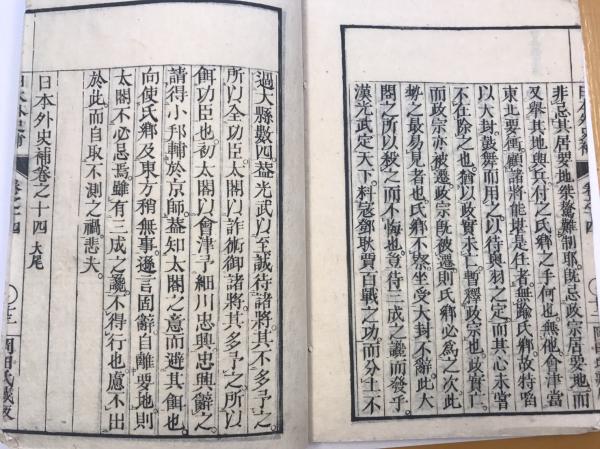 非忌其居要地桀驁難制耶。既忌政宗居要地而
又舉其地與兵付之氏鄉之手何也。無他會津當
東北要衝。顧諸將能堪是任者。無踰氏鄉。故特啗
以大封。鼓舞而用之。以待奧羽之定。而其心未嘗
不在除之也。猶以政實未亡。暫釋政宗也。政實亡。
而政宗亦被遷。政宗既被遷。則氏鄉必爲之次。此
勢之最易見者也。氏鄉不察。坐受大封不辭。此大
閤之所以殺之而不悔也。豈待三成之讒而發乎。
漢光武定天下。料寇鄧耿賈百戰之功。而分土不
過大縣數四。葢光武以至誠待諸將。其不多予之。
所以全功臣。太閤以詐術御諸將。其多予之。所以
餌功臣也。初太閤以會津予細川忠興。忠興辭之。
請得小邦輔於京師。葢知太閤之意而避其餌也。
向使氏鄉及東方稍無事。遜言固辭。自離要地。則
太閤不必忌焉。雖有三成之讒。不得行也。慮不出
於此而自取不測之禍。悲夫。
日本外史補卷之十四 大尾